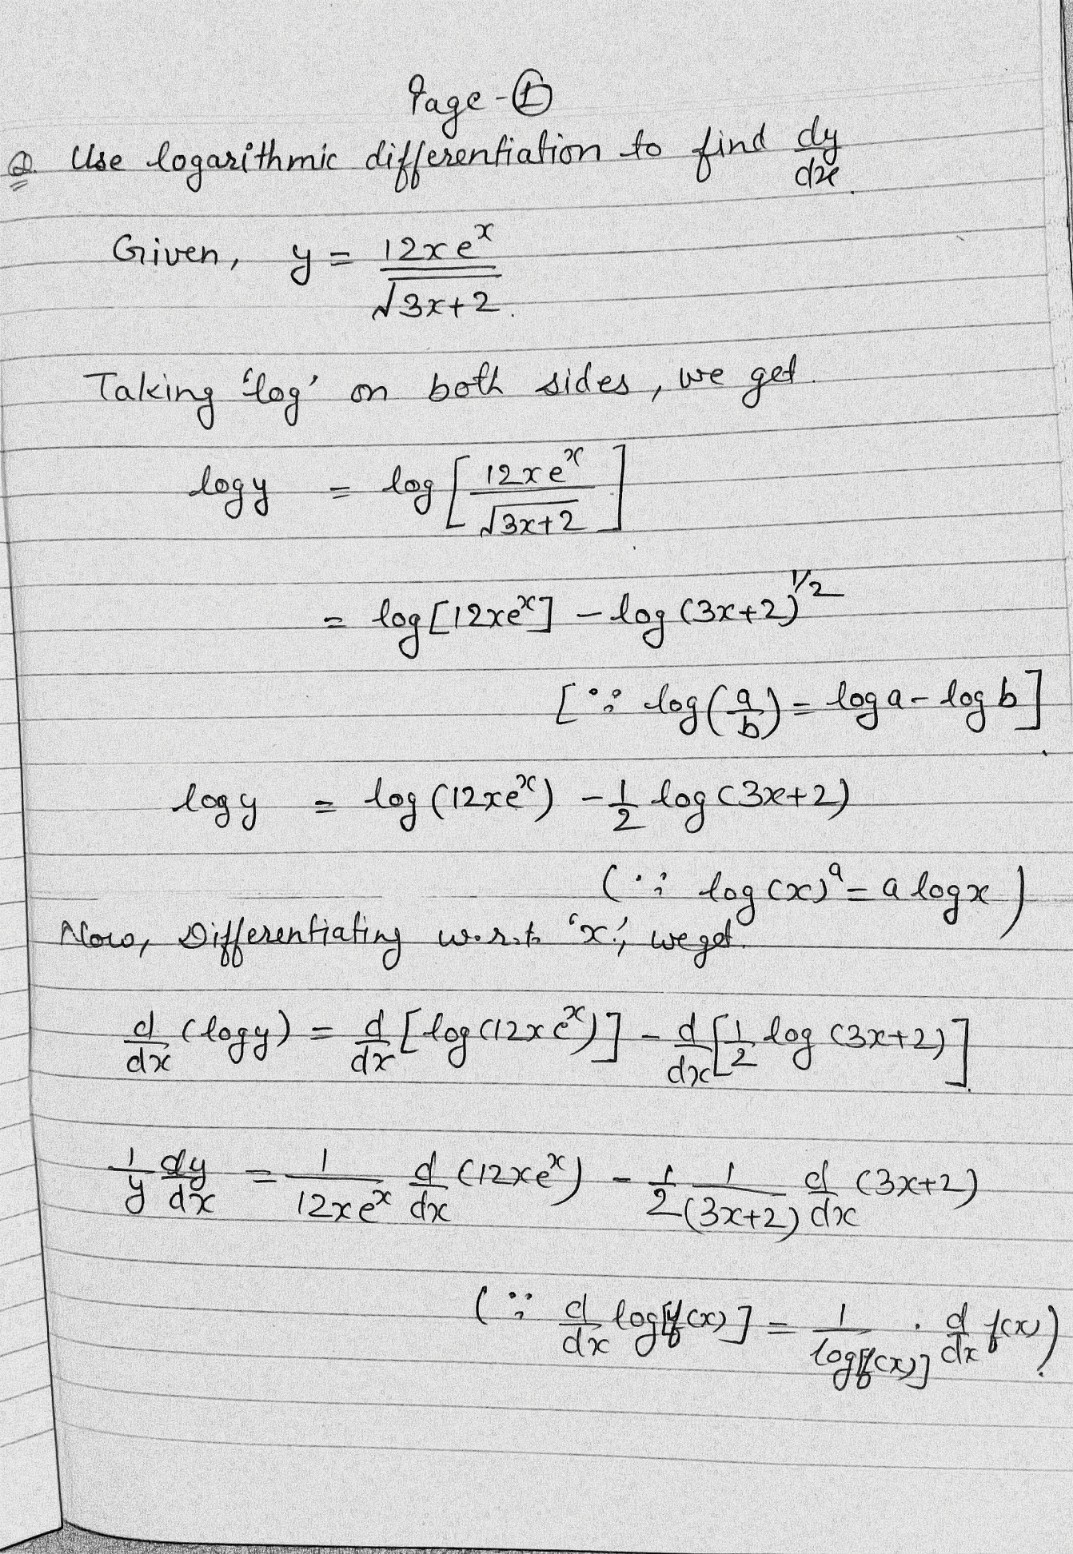 Page - ①
Q. Use logarithmic differentiation to find dy/dx.
Given, y = 12xe^x / √3x+2.
Taking 'log' on both sides, we get.
log y = log [ 12xe^x / √3x+2 ]
= log [12xe^x] - log (3x+2)^1/2
[∵ log(a/b) = log a - log b]
log y = log (12xe^x) - 1/2 log (3x+2)
(∵ log (x)^a = a log x)
Now, Differentiating w.r.t. 'x', we get.
d/dx (log y) = d/dx [log (12xe^x)] - d/dx [1/2 log (3x+2)]
1/y dy/dx = 1/12xe^x d/dx (12xe^x) - 1/2 1/(3x+2) d/dx (3x+2)
(∵ d/dx log[f(x)] = 1/log[f(x)] · d/dx f(x))